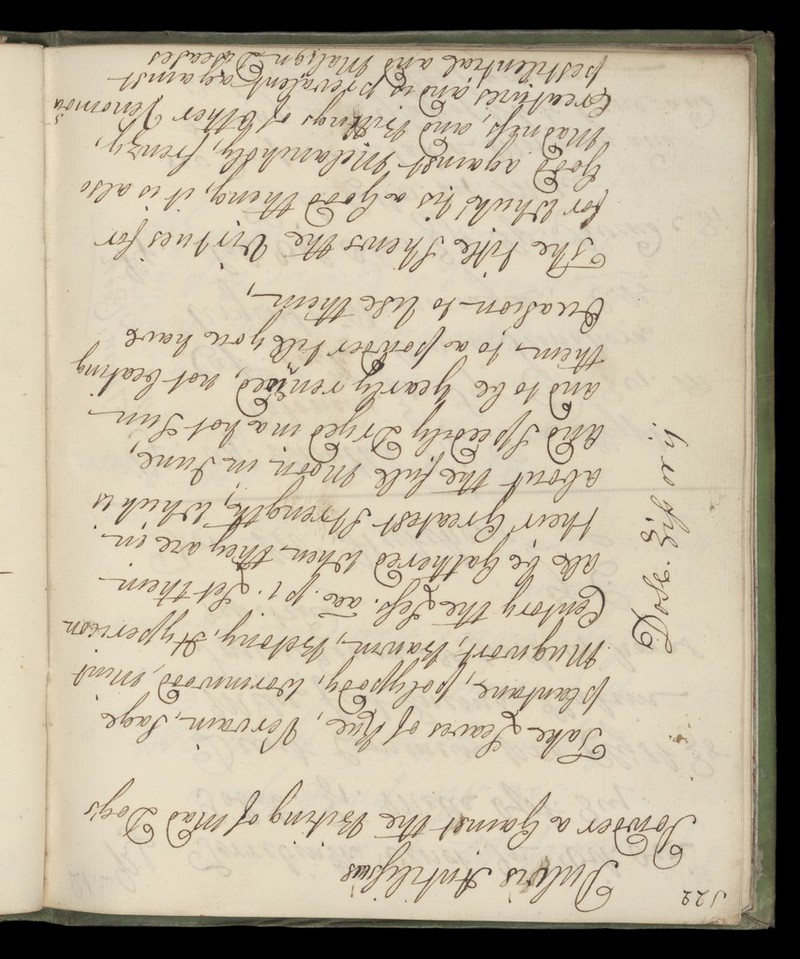 122
Pulvis Antilyssus
Powder against the Biting of Mad Dogs
Take Leaves of Rue, Vervain, Sage
plantane, polypody, wormwood, mint
Mugwort, Bawm, Betony, Hypericon
Centory the Less. aa. p1. Let them
all be gathered when they are in
their Greatest Strength, which is
about the full Moon in June,
and Speedily Dryed in a hot Sun
and to be yearly renued, not beating
them to a powder till you have
Ocasion to Use them,
Dose. ʒij. or ʒiij.
The title Shews the Virtues for
for which tis a Good thing, it is also
Good against Melancholy, frenzy,
Madness, and Bitings of other Venomous
Creatures, and is prevalent against
pestilential and Malign Diseases